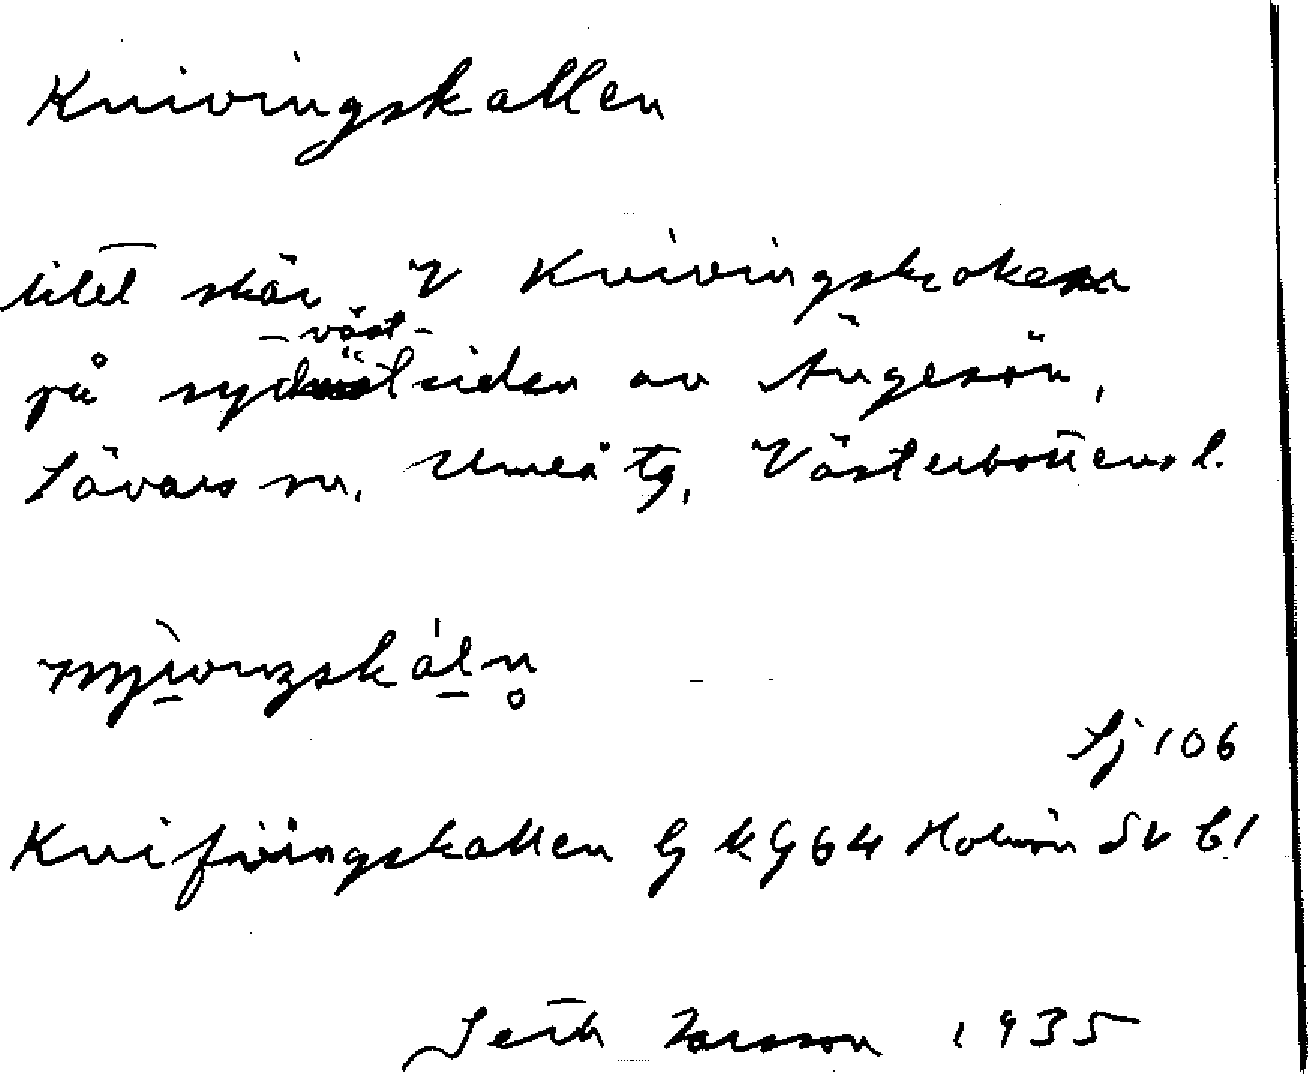 Knivingskallen
litet skär V Knivingskroken
-väst-
på sydvästsidan av Ängesön,
Sävars sn, Umeå tg, Västerbottens l.
Sj 106
Knifvingskallen G k G 64 Holmön SV b1
Seth Larsson 1935